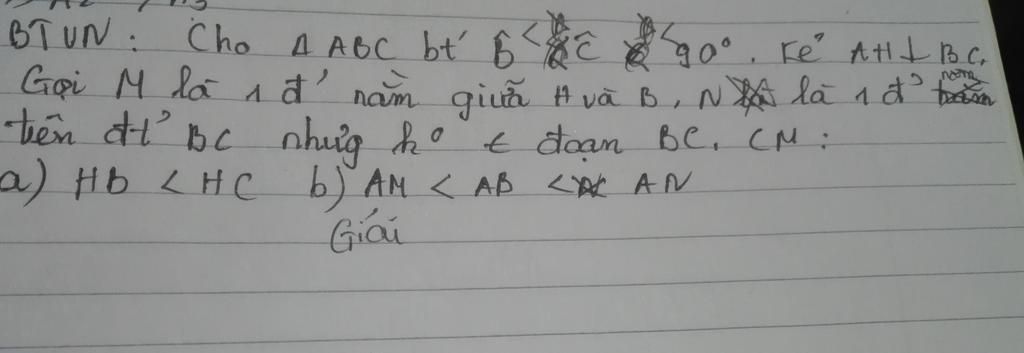 BTVN : Cho Δ ABC bt' B̂ < Ĉ < 90°. Kẻ AH ⊥ BC.
Gọi M là 1 đ' nằm giữa H và B, N là 1 đ' nằm
trên đt' BC nhưg k° ∈ đoạn BC. CM :
a) HB < HC b) AM < AB < AN
Giải